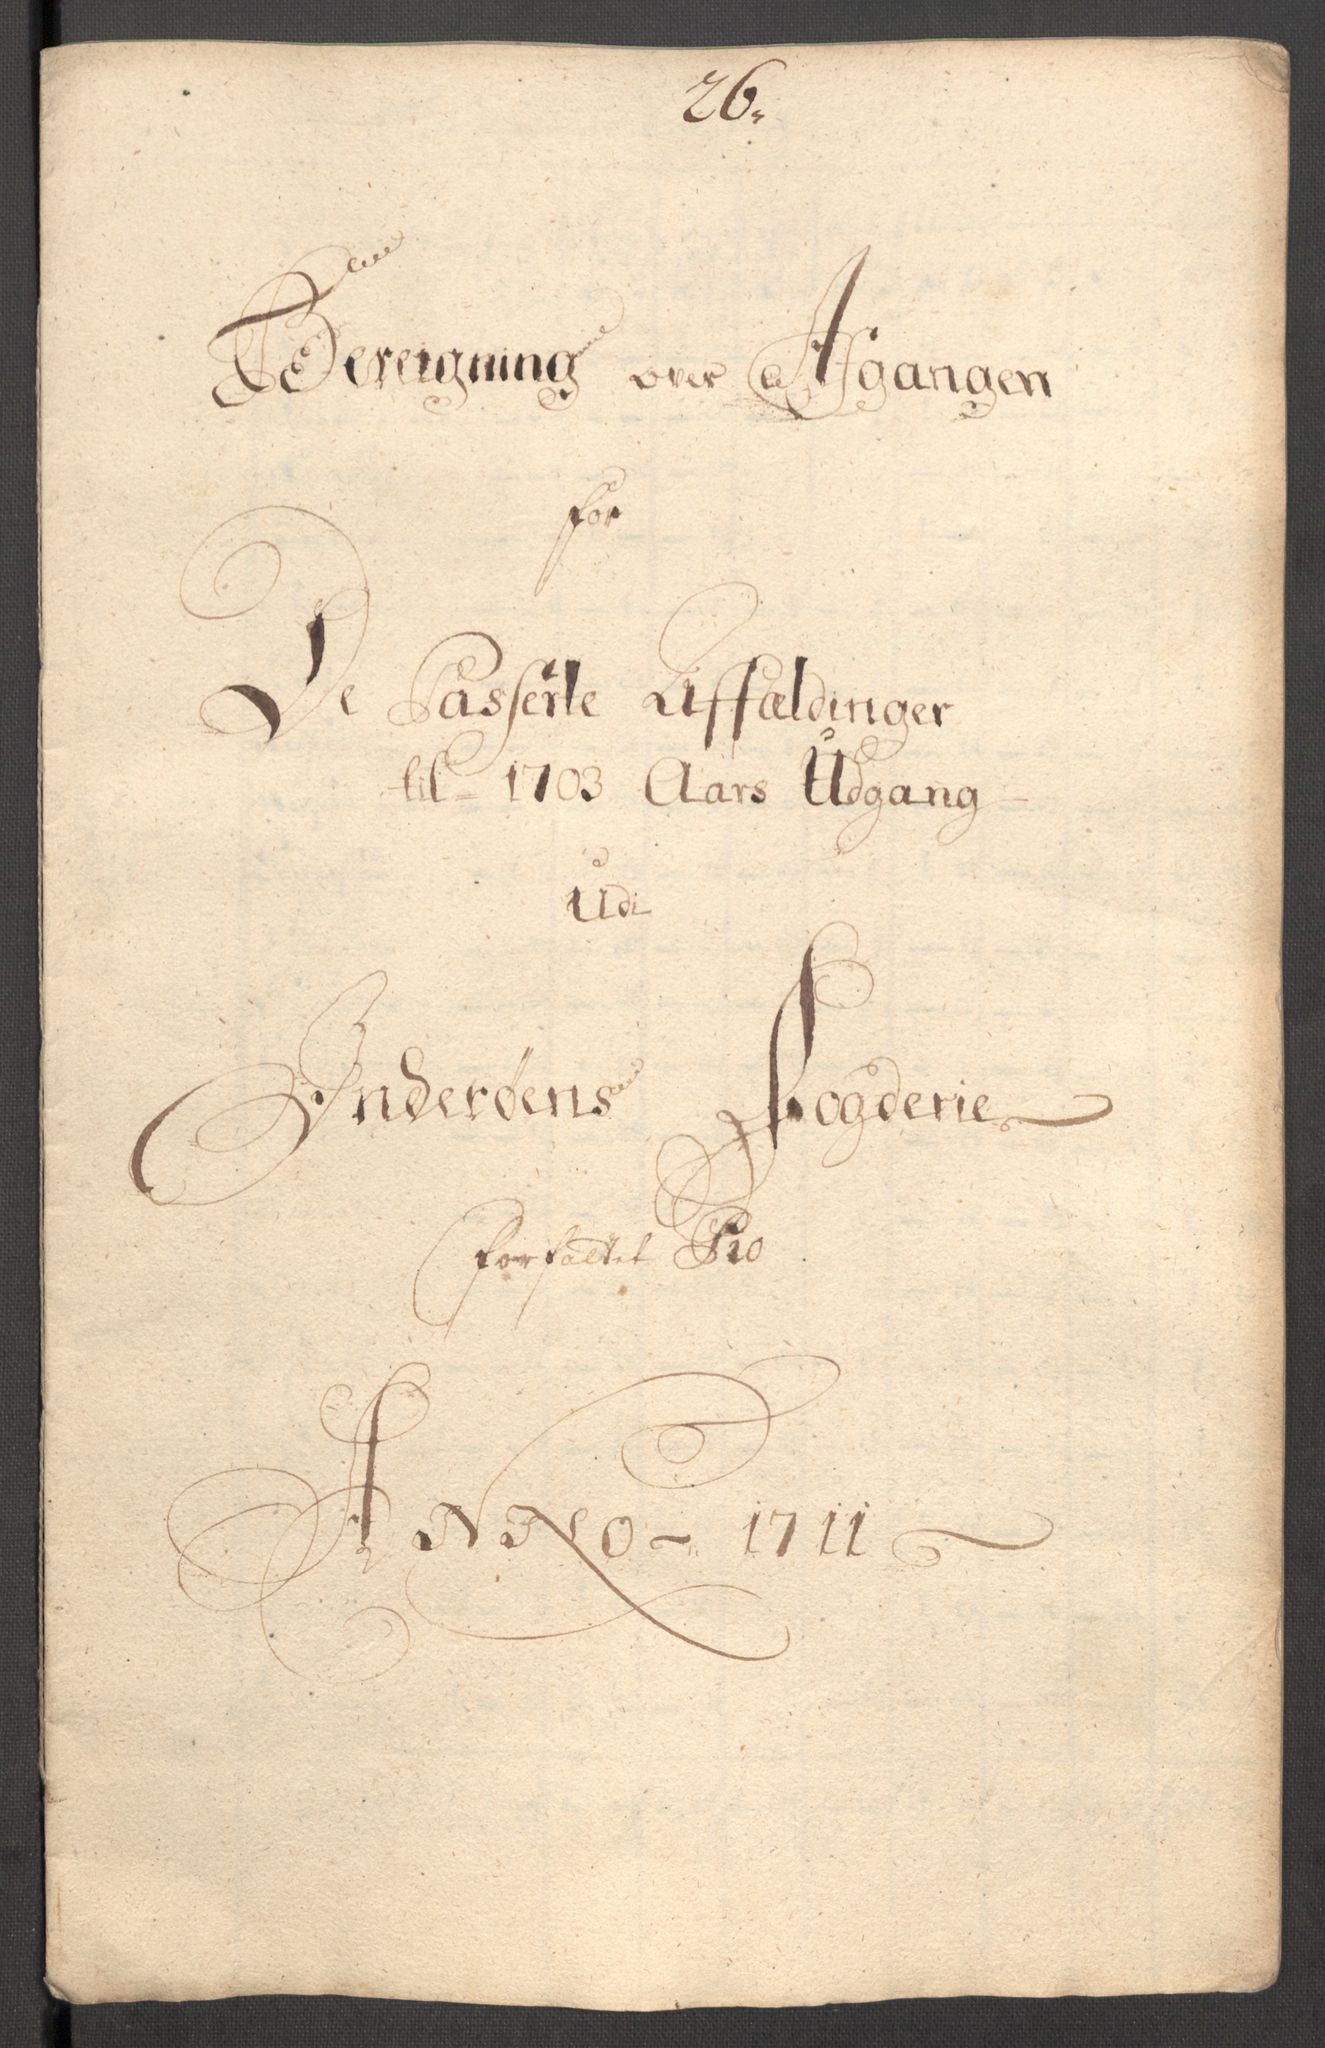 26.
Bereigning over Afgangen
for
De Passerte Uffældinger
til 1703 Aars Udgang
Udi
Inderøens Fogderie
forfattet Pro
Anno 1711